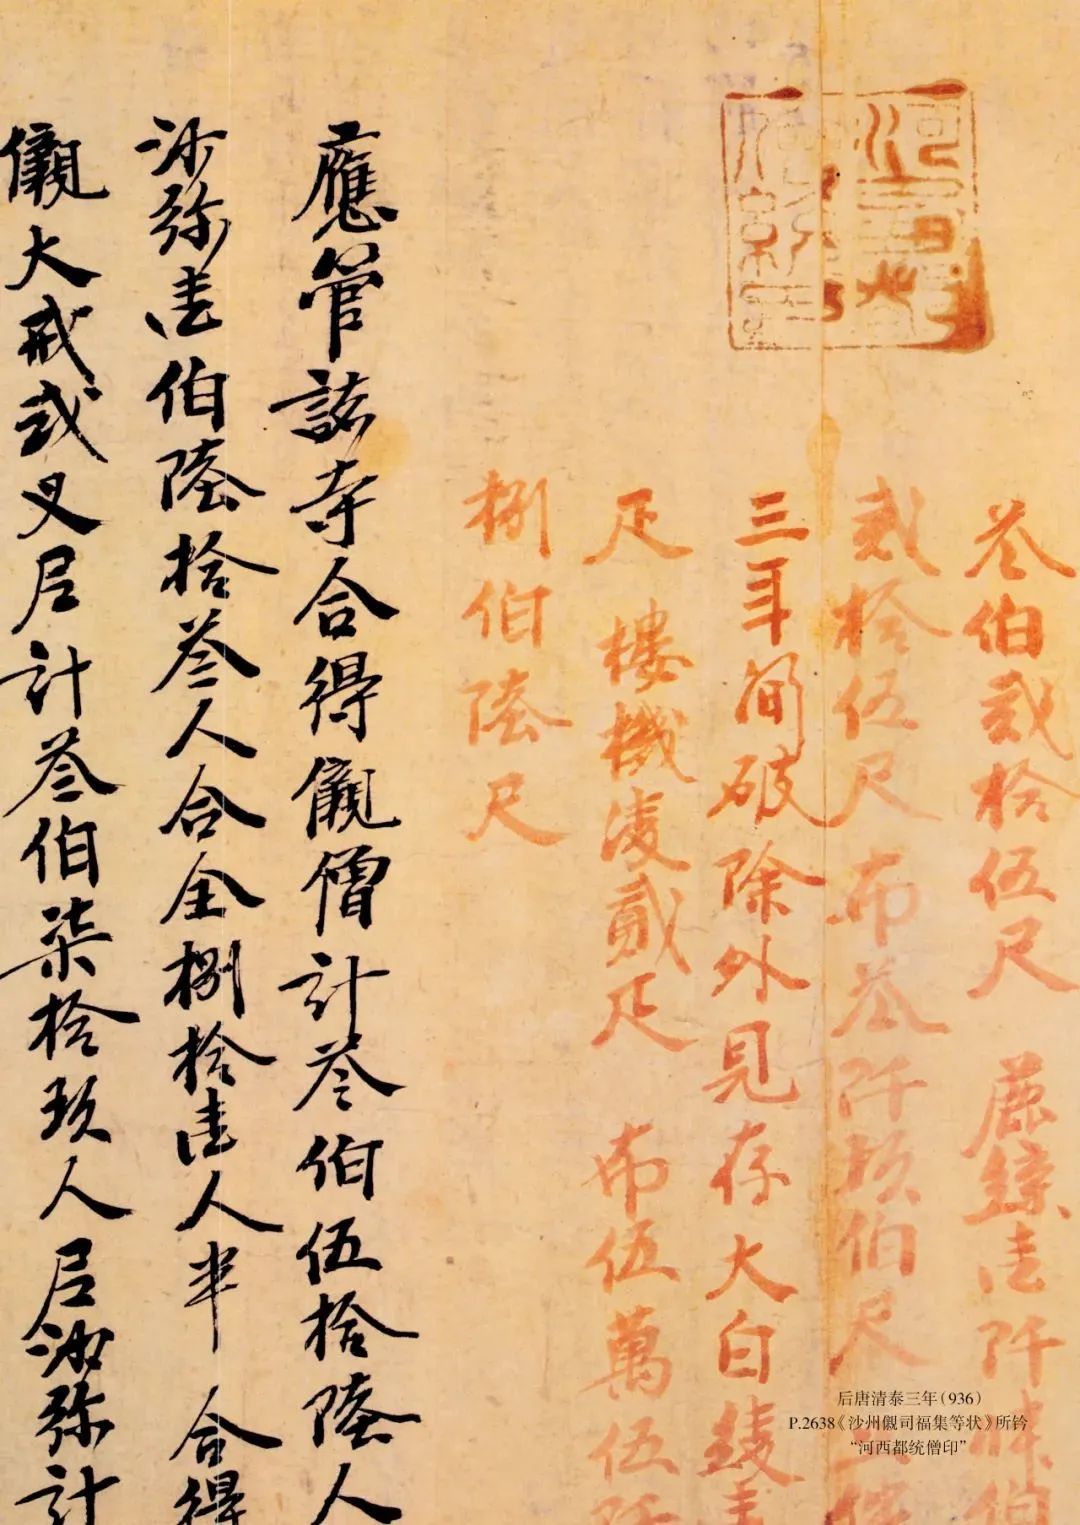 叁伯貳拾伍尺 麁緤壹阡肆伯
貳拾伍尺 布叁阡玖伯尺
三年中間破除外見存大白綾壹
疋 樓機凌貳疋 布伍萬伍阡
捌伯陸尺
應管諸寺合得儭僧計叁伯伍拾陸人
沙弥壹伯陸拾叁人合全捌拾壹人半 合得
儭大戒式叉尼計叁伯柒拾玖人尼沙弥計
后唐清泰三年(936)
P.2638《沙州儭司福集等状》所钤
“河西都统僧印”